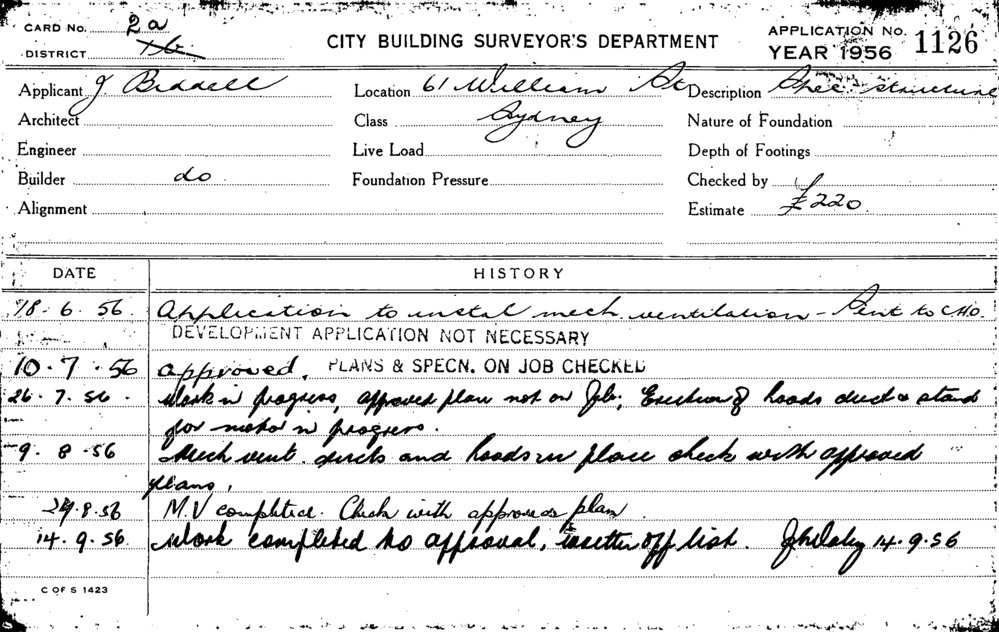 CARD No. 2a
DISTRICT 16
CITY BUILDING SURVEYOR'S DEPARTMENT
APPLICATION No. 1126
YEAR 1956
Applicant J Biddell
Location 61 William St
Description Spec. structure
Architect
Class Sydney
Nature of Foundation
Engineer
Live Load
Depth of Footings
Builder do
Foundation Pressure
Checked by
Alignment
Estimate £220.
DATE HISTORY
18.6.56. Application to instal mech. ventilation - Sent to CHO.
DEVELOPMENT APPLICATION NOT NECESSARY
10.7.56 approved. PLANS & SPECN. ON JOB CHECKED
26.7.56. Work in progress, approved plan not on Job, Erection of hoods duct & stand
for motor in progress.
9.8.56 Mech vent. ducts and hoods in place check with approved
plans.
29.8.56 M.V completed. Check with approved plan.
14.9.56. Work completed to approval, off list. 14.9.56
C OF S 1423